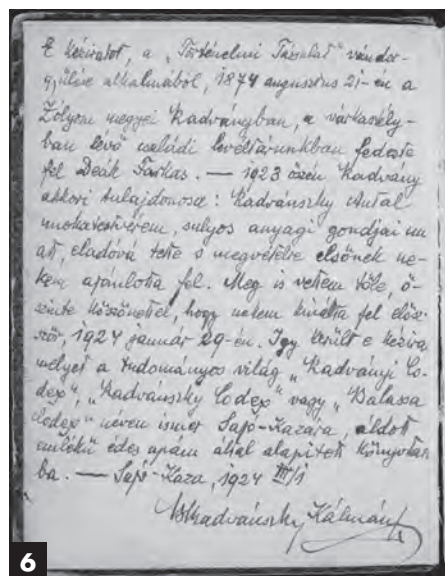 E kéziratot, a „Történelmi Társulat" vándor-
gyűlése alkalmából, 1874 augusztus 21-én a
Zólyom megyei Radványban, a várkastély-
ban lévő családi levéltárunkban fedezte
fel Deák Farkas. — 1923 őszén Radvány
akkori tulajdonosa: Radvánszky Antal
unokatestvérem, súlyos anyagi gondjai mi
att, eladóvá tette s megvételre elsőnek ne-
kem ajánlotta fel. Meg is vettem tőle, ő-
szinte köszönettel, hogy nekem kinálta fel elő-
ször, 1924 január 29-én. Igy került e kézira
melyet a tudományos világ „Radványi Co-
dex", „Radvánszky Codex" vagy „Balassa
Codex" néven ismer Sajó-Kazára, áldott
emlékű édes apám által alapitott könyvtár
ba. — Sajó-Kaza, 1924 III/1
Radvánszky Kálmán
6